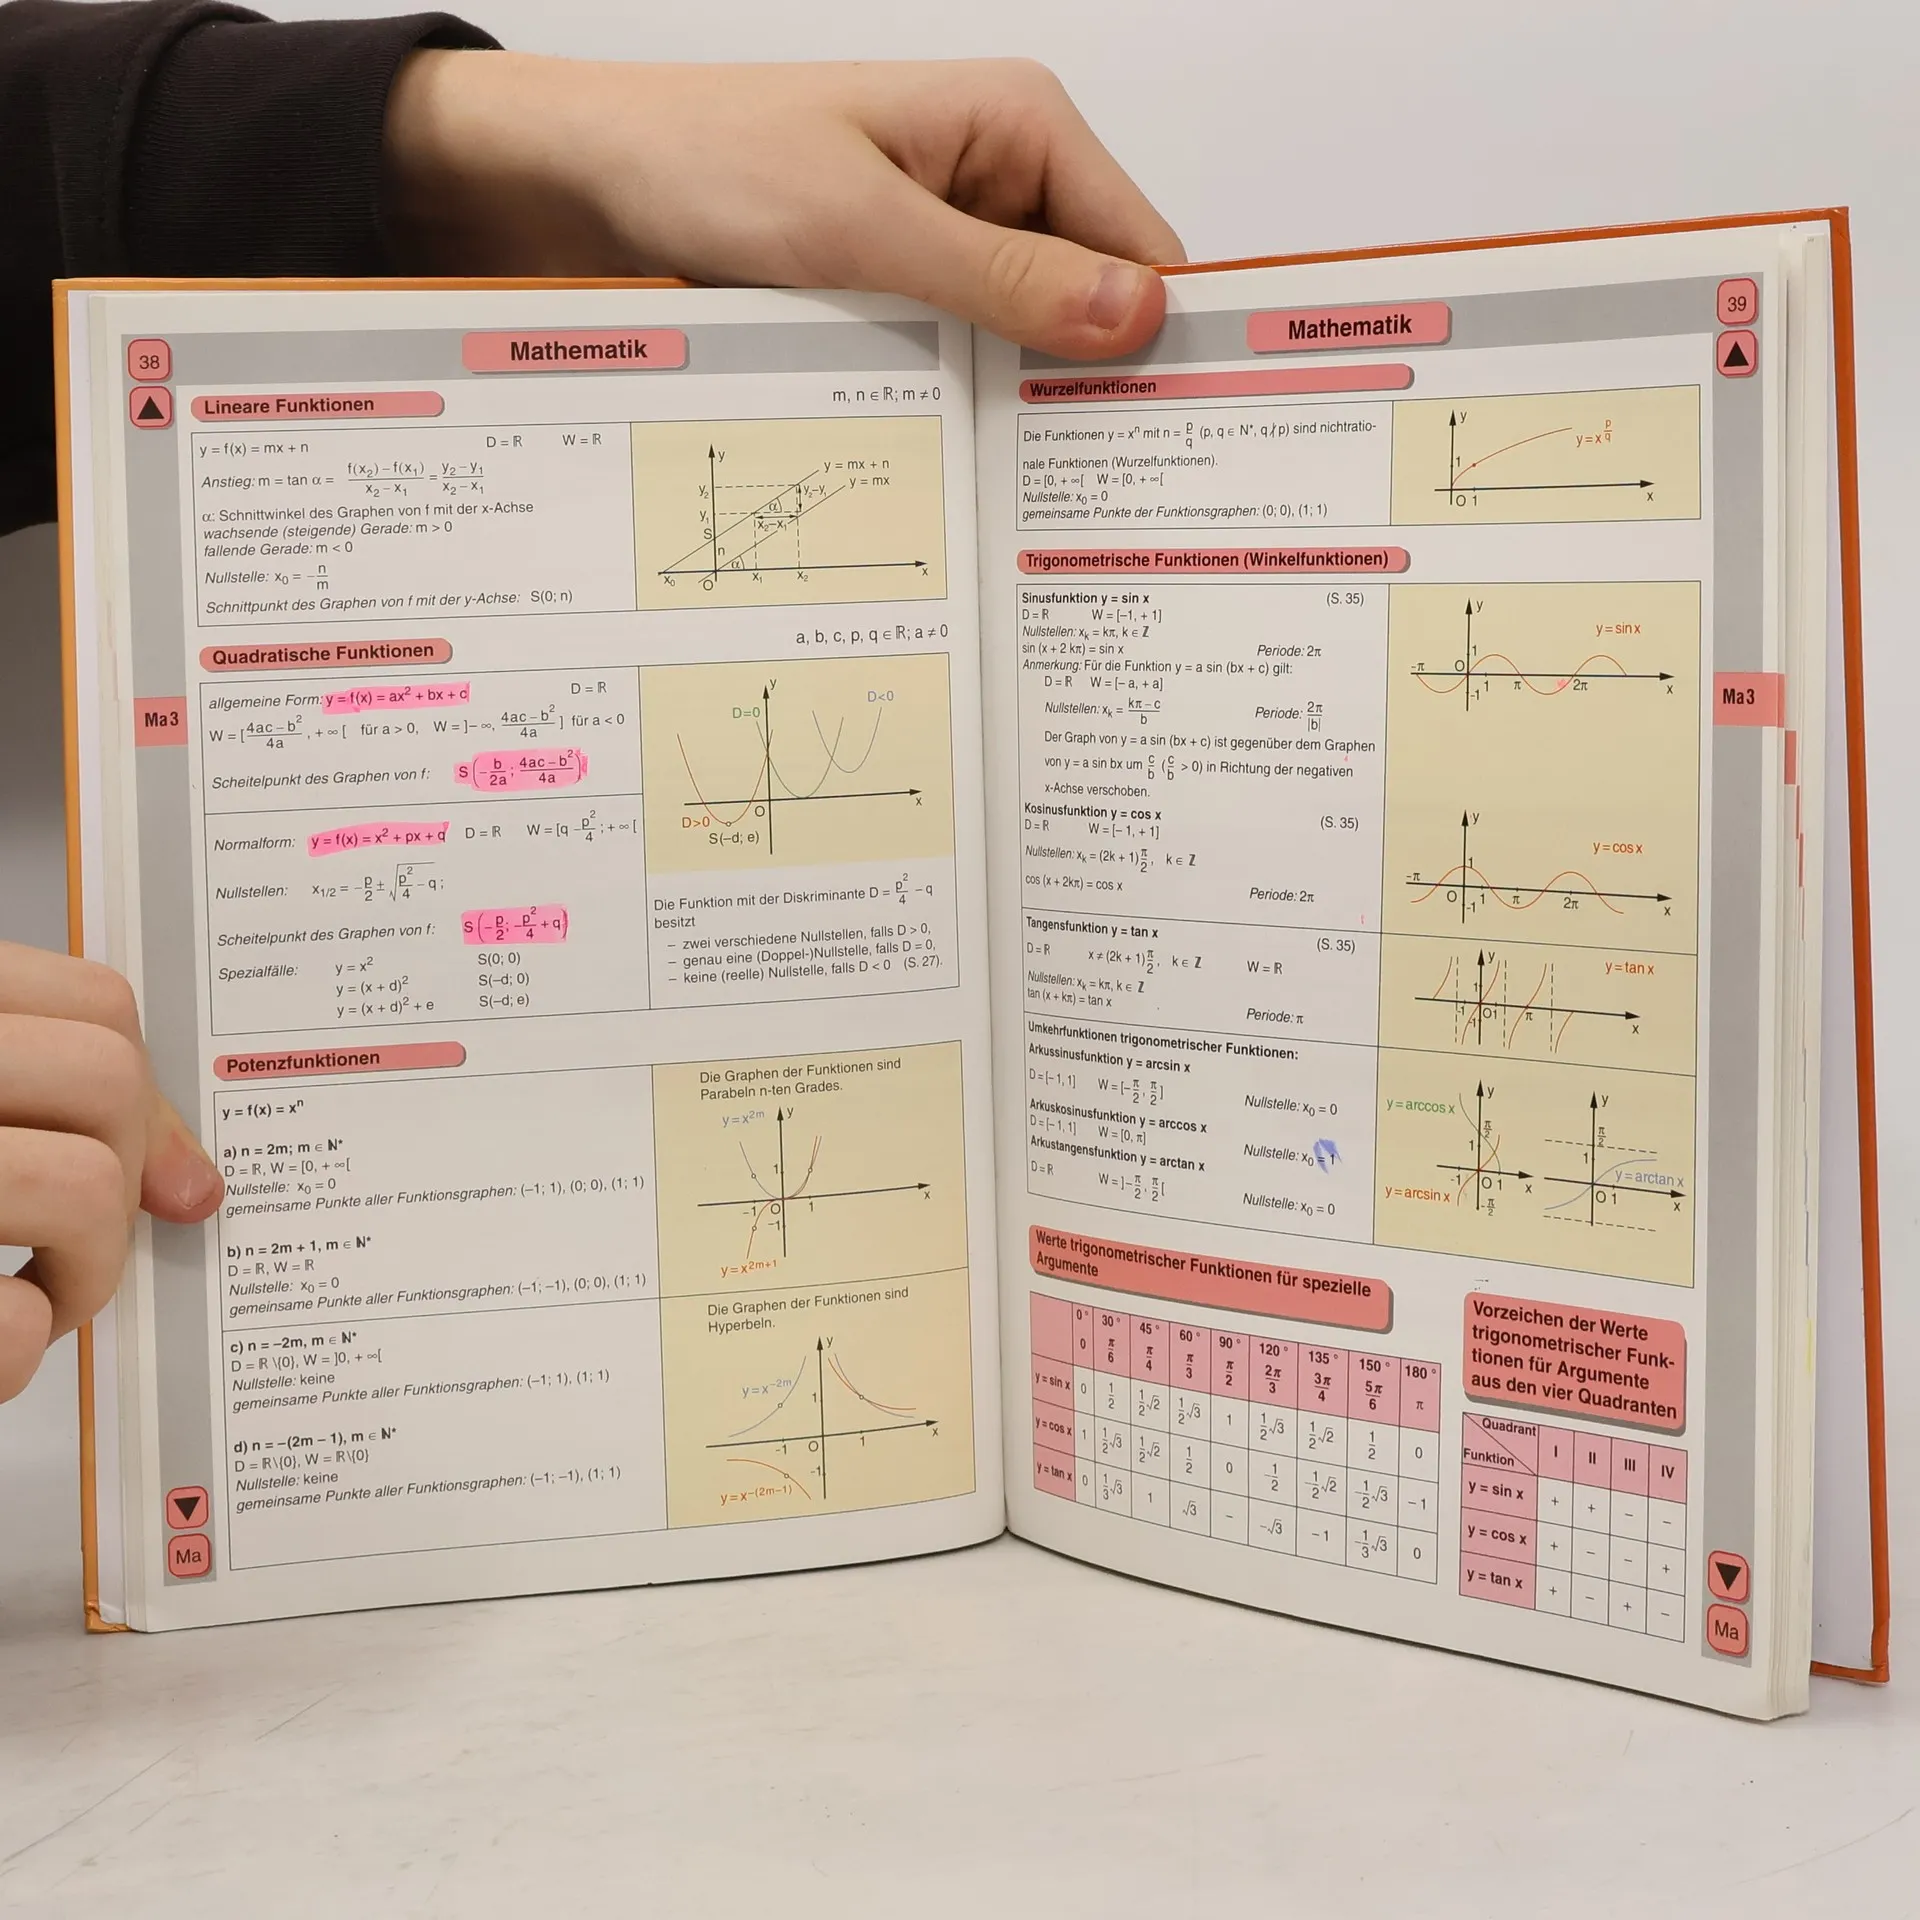 38
Mathematik
Lineare Funktionen
m, n ∈ ℝ; m ≠ 0
y = f(x) = mx + n D = ℝ W = ℝ
Anstieg: m = tan α = (f(x₂) – f(x₁))/(x₂ – x₁) = (y₂ – y₁)/(x₂ – x₁)
α: Schnittwinkel des Graphen von f mit der x-Achse
wachsende (steigende) Gerade: m > 0
fallende Gerade: m < 0
Nullstelle: x₀ = –n/m
Schnittpunkt des Graphen von f mit der y-Achse: S(0; n)
y
y = mx + n
y = mx
y₂
y₂–y₁
y₁
α
x₂–x₁
S
n
α
x₀ O x₁ x₂ x
Quadratische Funktionen
a, b, c, p, q ∈ ℝ; a ≠ 0
allgemeine Form: y = f(x) = ax² + bx + c D = ℝ
W = [(4ac – b²)/4a, + ∞[ für a > 0, W = ]– ∞, (4ac – b²)/4a] für a < 0
Scheitelpunkt des Graphen von f: S(–b/2a; (4ac – b²)/4a)
Normalform: y = f(x) = x² + px + q D = ℝ W = [q – p²/4; + ∞[
Nullstellen: x₁/₂ = –p/2 ± √(p²/4 – q);
Scheitelpunkt des Graphen von f: S(–p/2; –p²/4 + q)
Spezialfälle: y = x² S(0; 0)
y = (x + d)² S(–d; 0)
y = (x + d)² + e S(–d; e)
y
D=0
D<0
D>0
O
x
S(–d; e)
Die Funktion mit der Diskriminante D = p²/4 – q
besitzt
– zwei verschiedene Nullstellen, falls D > 0,
– genau eine (Doppel-)Nullstelle, falls D = 0,
– keine (reelle) Nullstelle, falls D < 0 (S. 27).
Ma3
Potenzfunktionen
y = f(x) = xⁿ
a) n = 2m; m ∈ ℕ*
D = ℝ, W = [0, + ∞[
Nullstelle: x₀ = 0
gemeinsame Punkte aller Funktionsgraphen: (–1; 1), (0; 0), (1; 1)
b) n = 2m + 1, m ∈ ℕ*
D = ℝ, W = ℝ
Nullstelle: x₀ = 0
gemeinsame Punkte aller Funktionsgraphen: (–1; –1), (0; 0), (1; 1)
Die Graphen der Funktionen sind
Parabeln n-ten Grades.
y = x²ᵐ
y
1
–1 O 1 x
–1
y = x²ᵐ⁺¹
c) n = –2m, m ∈ ℕ*
D = ℝ \{0}, W = ]0, + ∞[
Nullstelle: keine
gemeinsame Punkte aller Funktionsgraphen: (–1; 1), (1; 1)
d) n = –(2m – 1), m ∈ ℕ*
D = ℝ\{0}, W = ℝ\{0}
Nullstelle: keine
gemeinsame Punkte aller Funktionsgraphen: (–1; –1), (1; 1)
Die Graphen der Funktionen sind
Hyperbeln.
y
y = x⁻²ᵐ
1
–1 O 1 x
–1
y = x⁻⁽²ᵐ⁻¹⁾
Ma
39
Mathematik
Wurzelfunktionen
Die Funktionen y = xⁿ mit n = p/q (p, q ∈ N*, q∤p) sind nichtratio-
nale Funktionen (Wurzelfunktionen).
D = [0, + ∞[ W = [0, + ∞[
Nullstelle: x₀ = 0
gemeinsame Punkte der Funktionsgraphen: (0; 0), (1; 1)
y
y = x^(p/q)
1
O 1 x
Trigonometrische Funktionen (Winkelfunktionen)
Sinusfunktion y = sin x (S. 35)
D = R W = [–1, + 1]
Nullstellen: xₖ = kπ, k ∈ ℤ
sin (x + 2 kπ) = sin x Periode: 2π
Anmerkung: Für die Funktion y = a sin (bx + c) gilt:
D = R W = [– a, + a]
Nullstellen: xₖ = (kπ – c)/b Periode: 2π/|b|
Der Graph von y = a sin (bx + c) ist gegenüber dem Graphen
von y = a sin bx um c/b (c/b > 0) in Richtung der negativen
x-Achse verschoben.
y
y = sin x
1
–π O 1 π 2π x
–1
Kosinusfunktion y = cos x (S. 35)
D = R W = [– 1, + 1]
Nullstellen: xₖ = (2k + 1)π/2, k ∈ ℤ
cos (x + 2kπ) = cos x Periode: 2π
y
y = cos x
1
–π O 1 π 2π x
–1
Tangensfunktion y = tan x (S. 35)
D = R x ≠ (2k + 1)π/2, k ∈ ℤ W = ℝ
Nullstellen: xₖ = kπ, k ∈ ℤ
tan (x + kπ) = tan x Periode: π
y
y = tan x
1
–1 O 1 π x
–1
Umkehrfunktionen trigonometrischer Funktionen:
Arkussinusfunktion y = arcsin x
D = [– 1, 1] W = [–π/2, π/2] Nullstelle: x₀ = 0
Arkuskosinusfunktion y = arccos x
D = [– 1, 1] W = [0, π] Nullstelle: x₀ = 1
Arkustangensfunktion y = arctan x
D = R W = ]–π/2, π/2[ Nullstelle: x₀ = 0
y
y = arccos x
π/2
1
–1 O 1 x
y = arcsin x
–π/2
y
π/2
1
y = arctan x
O 1 x
Ma3
Werte trigonometrischer Funktionen für spezielle
Argumente
0° 30° 45° 60° 90° 120° 135° 150° 180°
0 π/6 π/4 π/3 π/2 2π/3 3π/4 5π/6 π
y = sin x 0 1/2 1/2√2 1/2√3 1 1/2√3 1/2√2 1/2 0
y = cos x 1 1/2√3 1/2√2 1/2 0 –1/2 –1/2√2 –1/2√3 –1
y = tan x 0 1/3√3 1 √3 – –√3 –1 –1/3√3 0
Vorzeichen der Werte
trigonometrischer Funk-
tionen für Argumente
aus den vier Quadranten
Quadrant
Funktion I II III IV
y = sin x + + – –
y = cos x + – – +
y = tan x + – + –
Ma